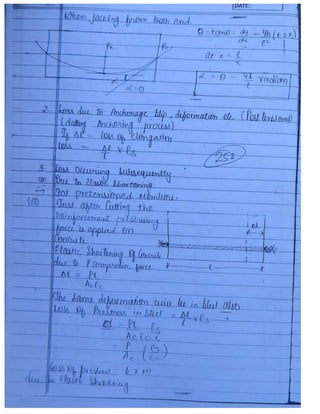 When jacking from both end
θ = tanθ = dy/dx = 4h/l² (l-2x)
at x = l/2
α = θ = 4h/l radian
P2
α=0
2. Loss due to Anchorage slip, deformation etc (Post tensioned)
(during Anchoring process)
If ΔL = loss of elongation
loss = ΔL/L × Es
252
3. Loss Occuring Subsequently
Due to Elastic Shortening
For pretensioned Members
(a) Just after cutting the
Reinforcement, prestressing
force is applied on
Concrete
Elastic Shortening of Concrete
due to P compressive force
ΔL = PL/AcEc
The same deformation will be in steel also
Loss Of Prestress in Steel = ΔL/L × Es
= PL/AcEc·L Es
= P/Ac (Es/Ec)
Loss of prestress fc × m
due to Elastic Shortening